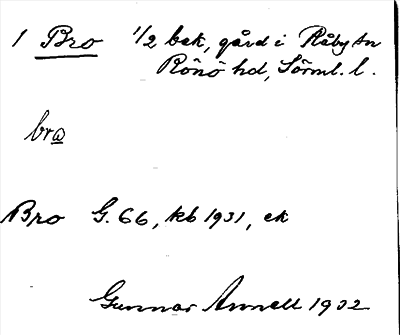 1 Bro 1/2 bek, gård i Råby sn
Rönö hd, Sörml. l.
bro
Bro G. 66, kb 1931, ek
Gunnar Annell 1932